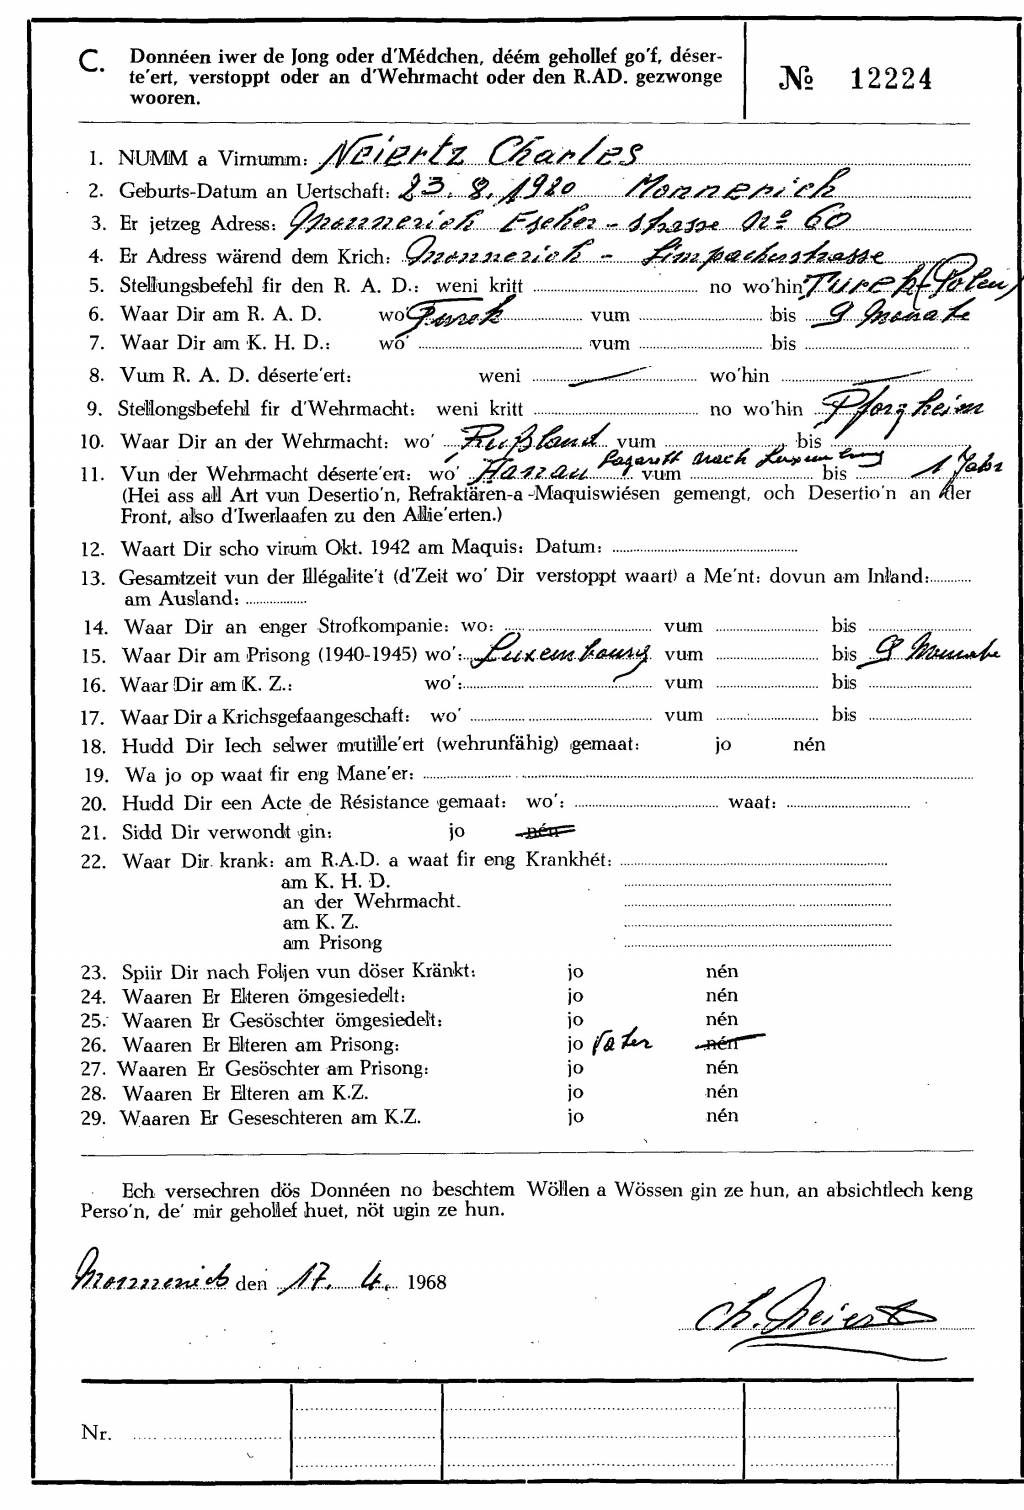 C. Donnéen iwer de Jong oder d'Médchen, déém gehollef go'f, déser-
te'ert, verstoppt oder an d'Wehrmacht oder den R.AD. gezwonge
wooren.
№ 12224
1. NUMM a Virnumm: Neiertz Charles
2. Geburts-Datum an Uertschaft: 23. 8. 1920 Monnerich
3. Er jetzeg Adress: Monnerich Escher-strasse No 60
4. Er Adress wärend dem Krich: Monnerich - Limpacherstrasse
5. Stellungsbefehl fir den R. A. D.: weni kritt no wo'hin Turek (Polen)
6. Waar Dir am R. A. D. wo' Turek vum bis 9 Monate
7. Waar Dir am K. H. D.: wo' vum bis
8. Vum R. A. D. déserte'ert: weni wo'hin
9. Stellongsbefehl fir d'Wehrmacht: weni kritt no wo'hin Pforzheim
10. Waar Dir an der Wehrmacht: wo' Rußland vum bis
11. Vun der Wehrmacht déserte'ert: wo' Hanau Lazarett nach Luxemburg vum bis 1 Jahr
(Hei ass all Art vun Desertio'n, Refraktären-a-Maquiswiésen gemengt, och Desertio'n an der
Front, also d'Iwerlaafen zu den Allie'erten.)
12. Waart Dir scho virum Okt. 1942 am Maquis: Datum:
13. Gesamtzeit vun der Illégalite't (d'Zeit wo' Dir verstoppt waart) a Me'nt: dovun am Inland:
am Ausland:
14. Waar Dir an enger Strofkompanie: wo: vum bis
15. Waar Dir am Prisong (1940-1945) wo': Luxembourg vum bis 9 Monate
16. Waar Dir am K. Z.: wo': vum bis
17. Waar Dir a Krichsgefaangeschaft: wo' vum bis
18. Hudd Dir Iech selwer mutille'ert (wehrunfähig) gemaat: jo nén
19. Wa jo op waat fir eng Mane'er:
20. Hudd Dir een Acte de Résistance gemaat: wo': waat:
21. Sidd Dir verwondt gin: jo nén
22. Waar Dir krank: am R.A.D. a waat fir eng Krankhét:
am K. H. D.
an der Wehrmacht.
am K. Z.
am Prisong
23. Spiir Dir nach Foljen vun döser Kränkt: jo nén
24. Waaren Er Elteren ömgesiedelt: jo nén
25. Waaren Er Gesöschter ömgesiedelt: jo nén
26. Waaren Er Elteren am Prisong: jo Vater nén
27. Waaren Er Gesöschter am Prisong: jo nén
28. Waaren Er Elteren am K.Z. jo nén
29. Waaren Er Geseschteren am K.Z. jo nén
Ech versechren dös Donnéen no beschtem Wöllen a Wössen gin ze hun, an absichtlech keng
Perso'n, de' mir gehollef huet, nöt ugin ze hun.
Monnerich den 17. 4. 1968
Ch. Neiertz
Nr.